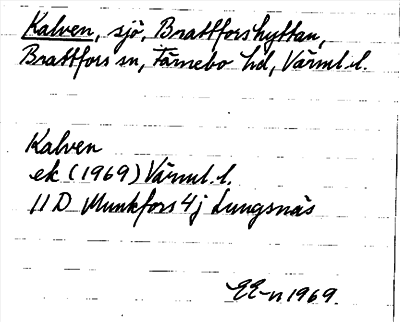 Kalven, sjö, Brattforshyttan,
Brattfors sn, Färnebo hd, Värml. l.
Kalven
ek (1969) Värml. l.
11 D Munkfors 4j Lungsnäs
EE-n 1969.